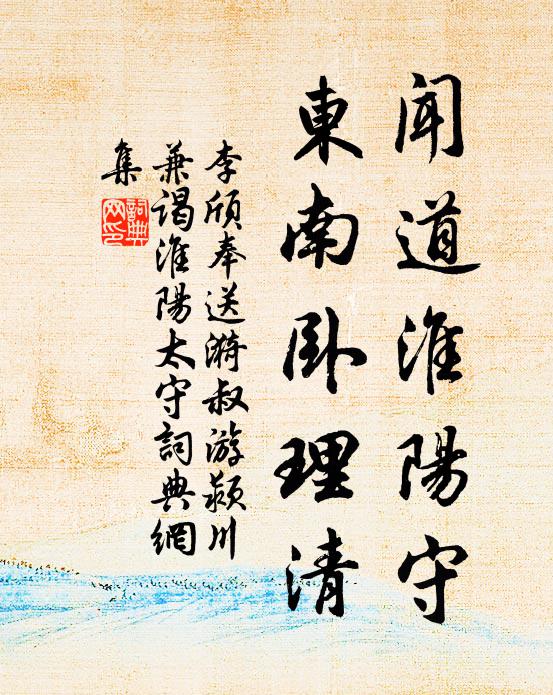 聞道淮陽守
東南卧理清
李頎奉送漪叔游潁川
兼謁淮陽太守詞典網
集
詞典
网印